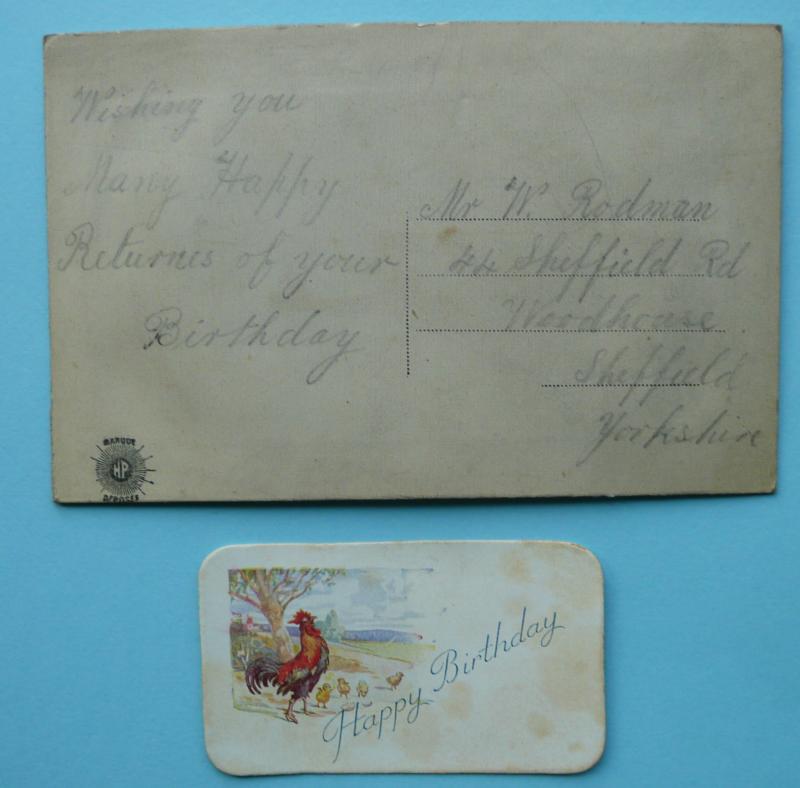 Wishing you
Many Happy
Returnes of your
Birthday
Mr W. Rodman
44 Sheffield Rd
Woodhouse
Sheffield
Yorkshire
MARQUE
HP
DEPOSEE
Happy Birthday